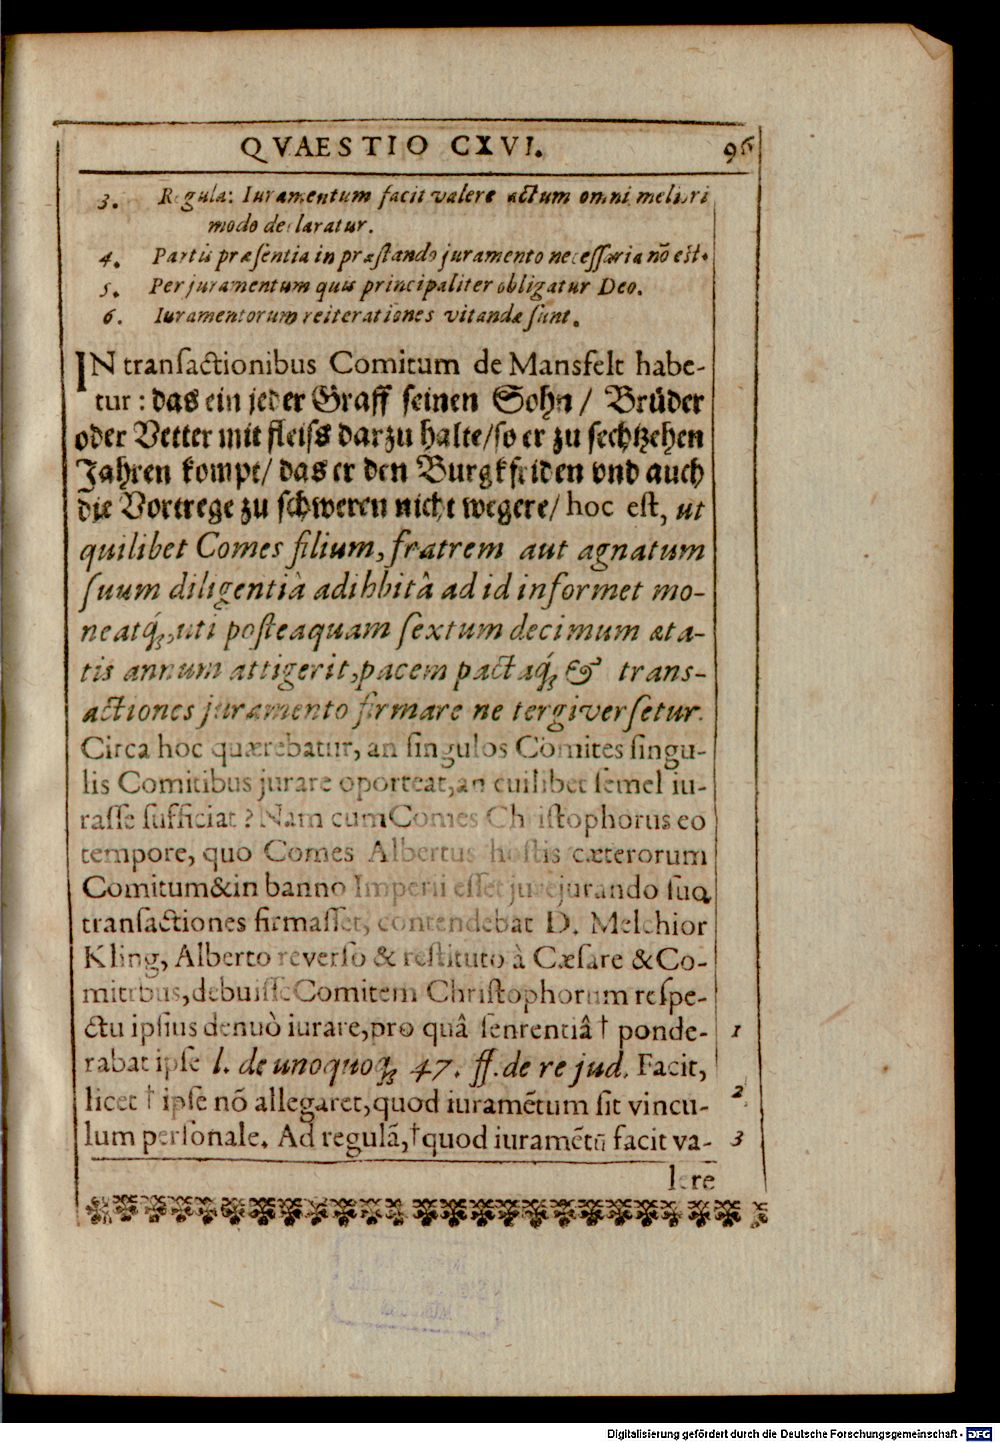 QVAESTIO CXVI. 96
3. Regula: Iuramentum facit valere actum omni meliori
modo declaratur.
4. Partis præſentia in præſtando juramento neceſſaria nõ eſt.
5. Perjuramentum quis principaliter obligatur Deo.
6. Iuramentorum reiterationes vitandæ ſunt.
IN tranſactionibus Comitum de Mansfelt habe-
tur: das ein jeder Graff ſeinen Sohn / Brüder
oder Vetter mit fleiſs darzu halte/ſo er zu ſechtzehen
Jahren kompt/ das er den Burgkfriden vnd auch
die Vortrege zu ſchweren nicht wegere/ hoc eſt, ut
quilibet Comes filium, fratrem aut agnatum
ſuum diligentià adihbitâ ad id informet mo-
neatq́;, uti poſteaquam ſextum decimum æta-
tis annum attigerit, pacem pactaq́; & trans-
actiones juramento firmare ne tergiverſetur.
Circa hoc quærebatur, an ſingulos Comites ſingu-
lis Comitibus jurare oporteat, an cuilibet ſemel iu-
raſſe ſufficiat? Nam cum Comes Chriſtophorus eo
tempore, quo Comes Albertus hoſtis cæterorum
Comitum & in banno Imperii eſſet jurejurando ſuo
tranſactiones firmaſſet, contendebat D. Melchior
Kling, Alberto reverſo & reſtituto à Cæſare & Co-
mitibus, debuiſſe Comitem Chriſtophorum reſpe-
ctu ipſius denuò iurare, pro quâ ſenrentiâ † ponde- 1
rabat ipſe l. de unoquoq; 47. ff. de re jud. Facit,
licet † ipſe nõ allegaret, quod iuramẽtum ſit vincu- 2
lum perſonale. Ad regulã, † quod iuramẽtũ facit va- 3
lere
Digitalisierung gefördert durch die Deutsche Forschungsgemeinschaft - DFG